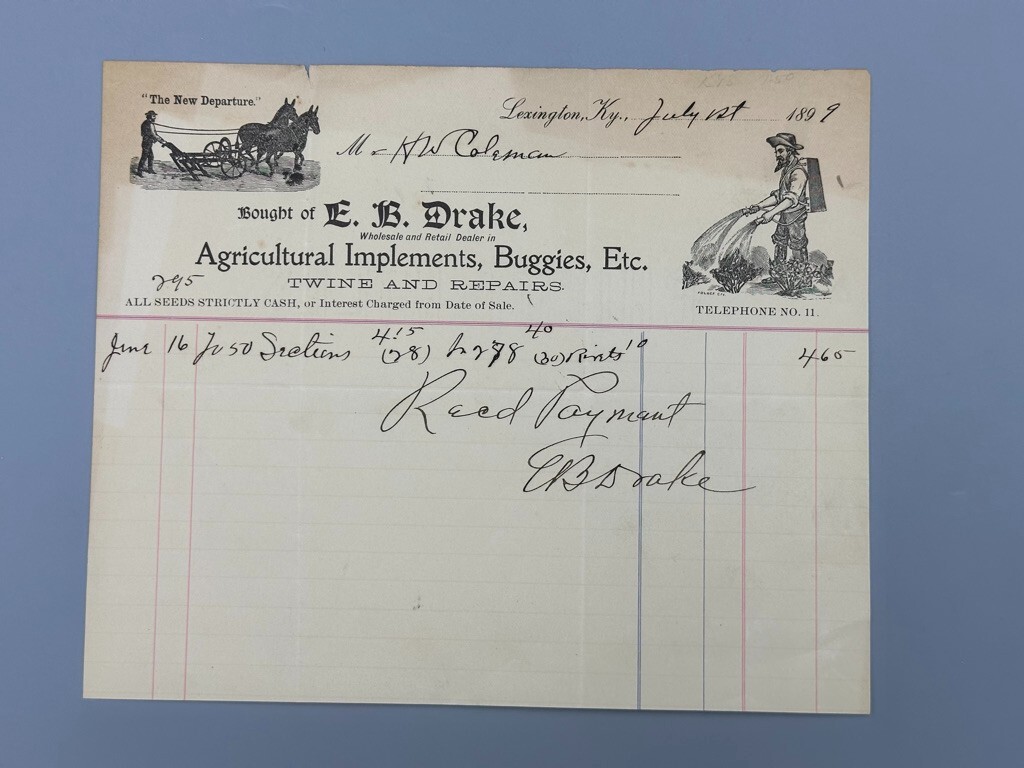 "The New Departure."
Lexington, Ky., July 1st 1899
M - H W Coleman
Bought of E. B. Drake,
Wholesale and Retail Dealer in
Agricultural Implements, Buggies, Etc.
TWINE AND REPAIRS.
295
ALL SEEDS STRICTLY CASH, or Interest Charged from Date of Sale.
TELEPHONE NO. 11.
415 40
June 16 To 50 Sections (28) 278 (30) 10 465
Recd Paymant
EB Drake